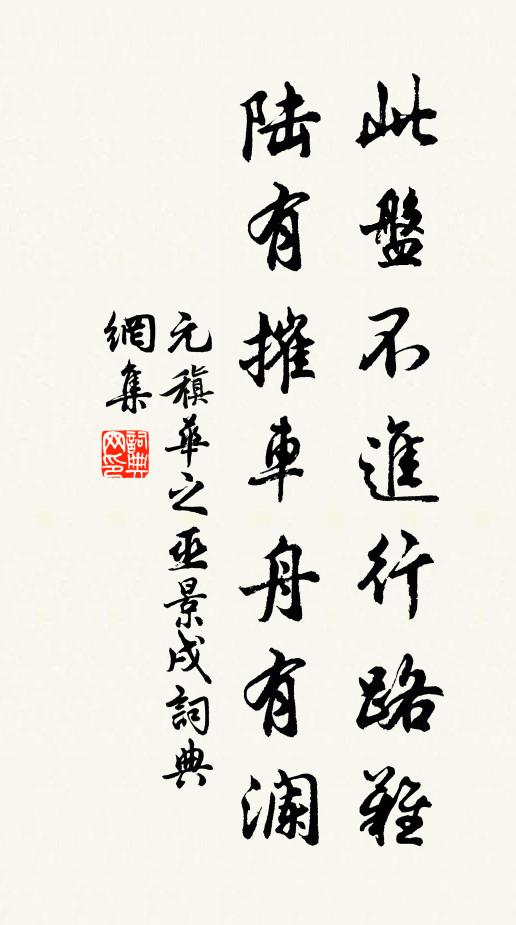 此盤不進行路難
陸有摧車舟有瀾
元稹華之巫景戌詞典
網集
詞典网印